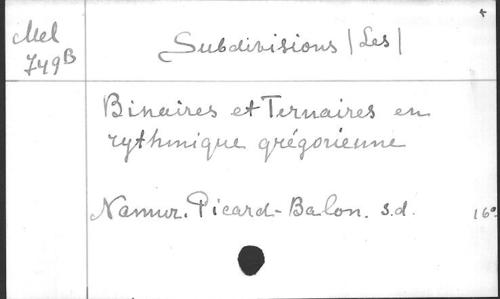 Mel
749B
Subdivisions |Les|
Binaires et Ternaires en
rythmique grégorienne
Namur. Picard-Balon. s.d. 16º